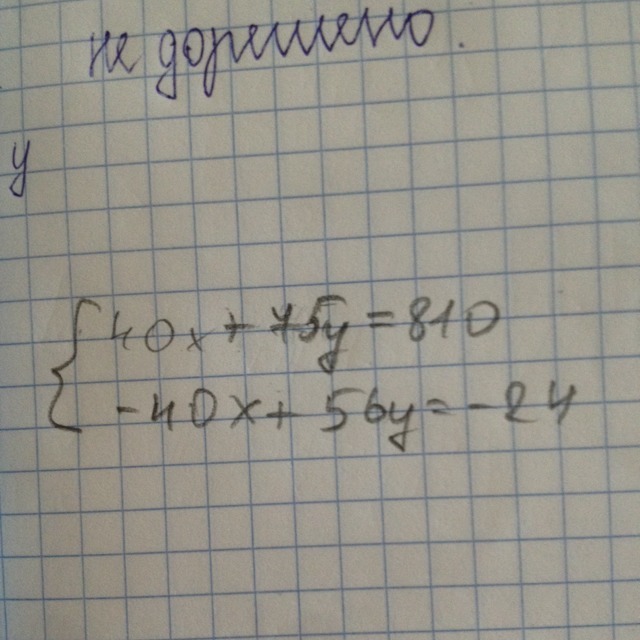 не дорешено.
у
{ 40x + 75y = 810
-40x + 56y = -24